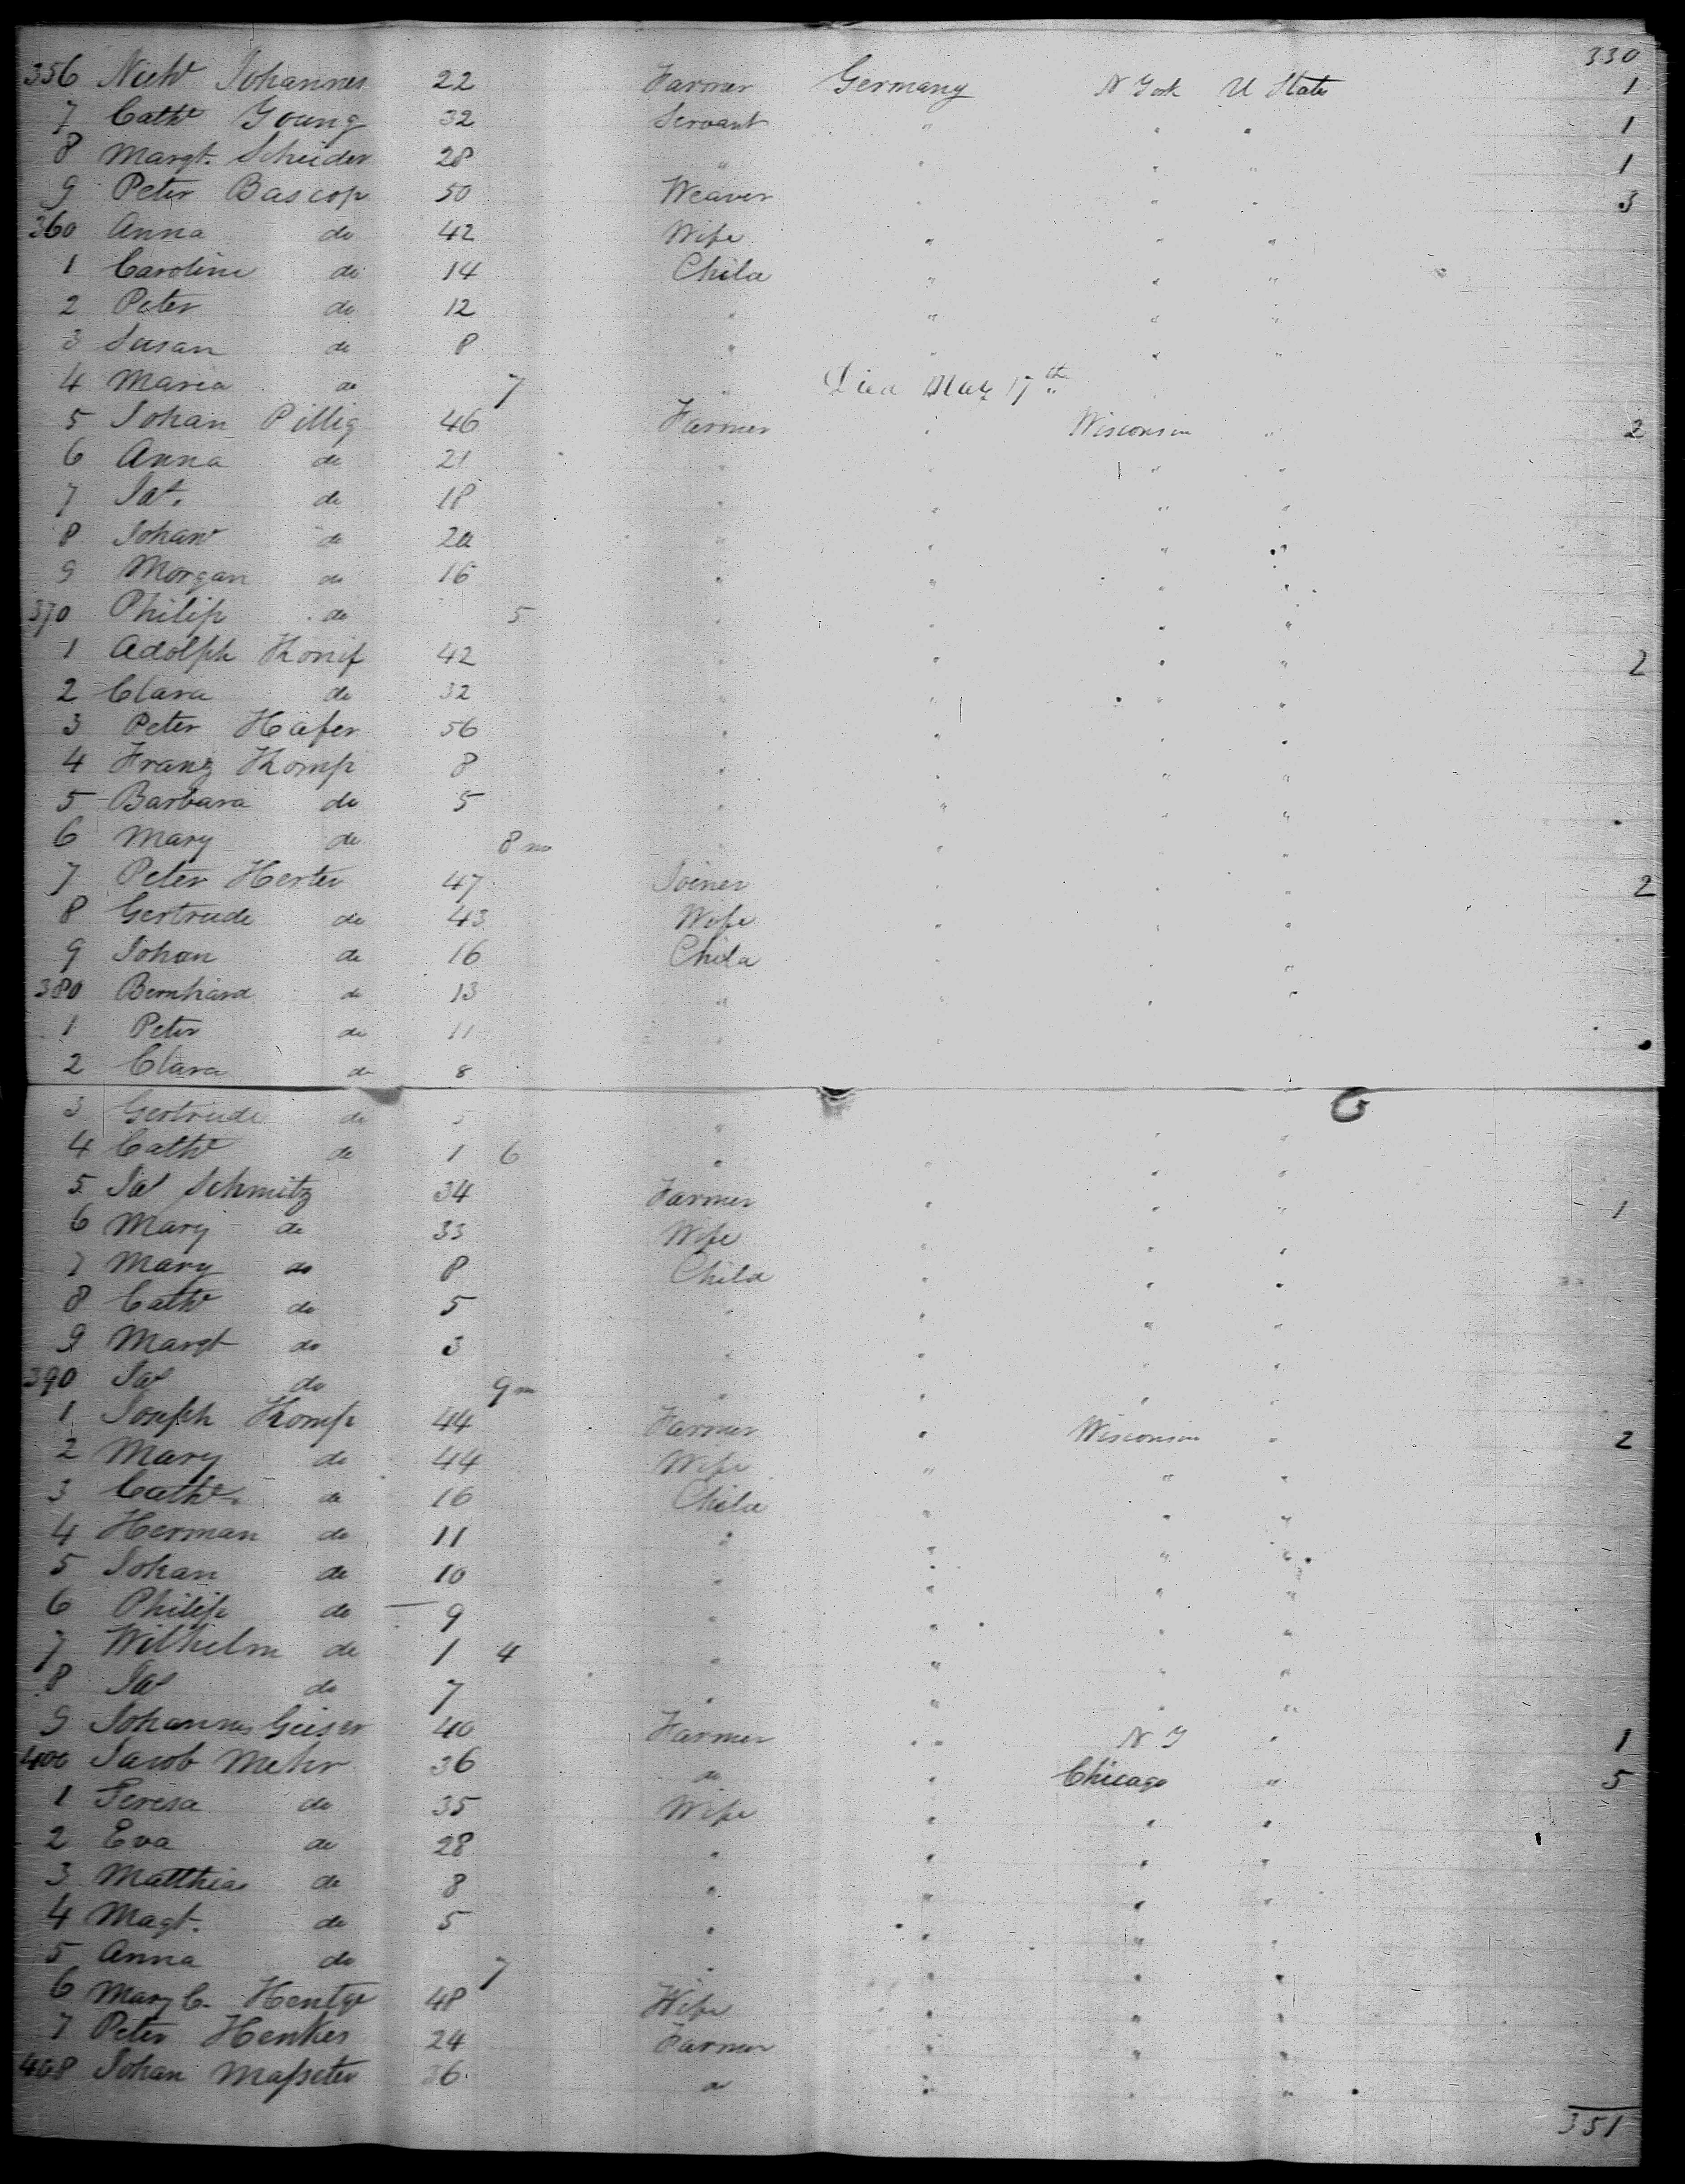 330
356 Nichs Johannes 22 Farmer Germany N York U State 1
7 Cathe Young 32 Servant " " " 1
8 Margt. Scheider 28 " " " " 1
9 Peter Bascop 50 Weaver " " " 3
360 Anna do 42 Wife " " "
1 Caroline do 14 Child " " "
2 Peter do 12 " " " "
3 Susan do 8 " " " "
4 Maria do 7 " Died May 17th "
5 Johan Pillig 46 Farmer " Wisconsin " 2
6 Anna do 21 " " "
7 Jas. do 18 " " " "
8 Johan do 20 " " " "
9 Morgan do 16 " " " "
370 Philip do 5 " " " "
1 Adolph Konif 42 " " " " 2
2 Clara do 32 " " " "
3 Peter Häfer 56 " " " "
4 Franz Komp 8 " " " "
5 Barbara do 5 " " " "
6 Mary do 8 mo " " " "
7 Peter Herter 47 Joiner " " " 2
8 Gertrude do 43 Wife " " "
9 Johan do 16 Child " " "
380 Bernhard do 13 " " " "
1 Peter do 11 " "
2 Clara do 8
3 Gertrude do 5 " " "
4 Cathe do 1 6 " " " "
5 Jas Schmitz 34 Farmer " " " 1
6 Mary do 33 Wife " " "
7 Mary do 8 Child " " "
8 Cathe do 5 " " " "
9 Margt do 3 " " " "
390 Jas do 9 m " " " "
1 Joseph Komp 44 Farmer " Wisconsin " 2
2 Mary do 44 Wife " " "
3 Cathe. do 16 Child " " "
4 Herman do 11 " " " "
5 Johan do 10 " " " "
6 Philip do 9 " " " "
7 Wilhelm do 1 4 " " " "
8 Jas do 7 " " " "
9 Johannes Geiser 40 Farmer " N Y " 1
400 Jacob Mehr 36 do " Chicago " 5
1 Teresa do 35 Wife " " "
2 Eva do 28 " " " "
3 Matthias do 8 " " " "
4 Magt. do 5 " " " "
5 Anna do 7 " " " "
6 Mary C. Hentge 48 Wife " " "
7 Peter Henkes 24 Farmer " " "
408 Johan Masseter 36 do " " "
351